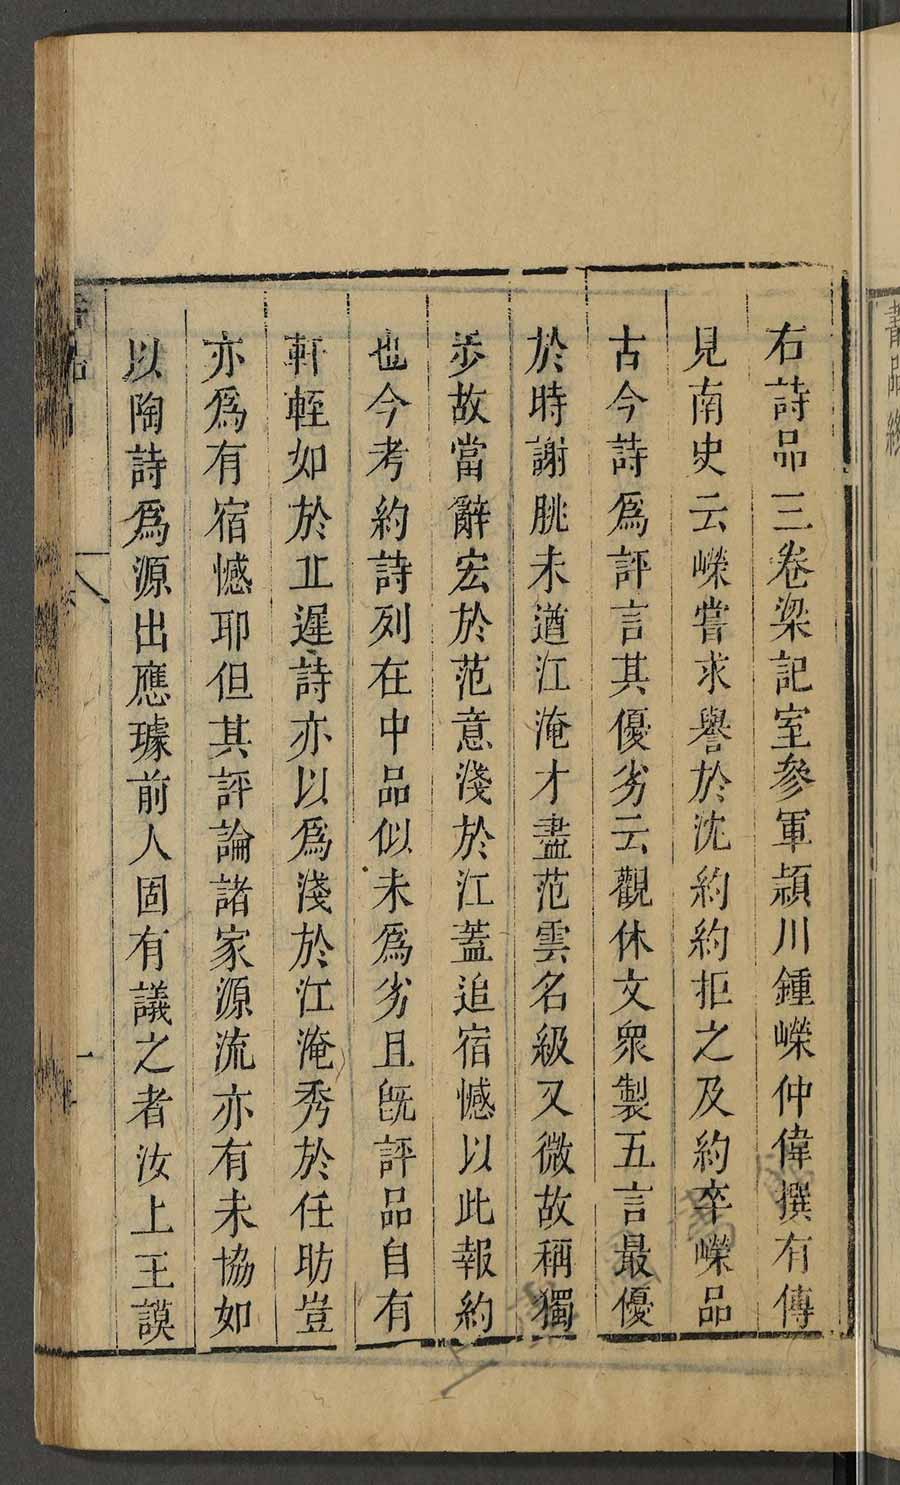 右詩品三卷梁記室參軍潁川鍾嶸仲偉撰有傳
見南史云嶸嘗求譽於沈約約拒之及約卒嶸品
古今詩爲評言其優劣云觀休文衆製五言最優
於時謝朓未遒江淹才盡范雲名級又微故稱獨
步故當辭宏於范意淺於江蓋追宿憾以此報約
也今考約詩列在中品似未爲劣且既評品自有
軒輊如於丘遲詩亦以爲淺於江淹秀於任昉豈
亦爲有宿憾耶但其評論諸家源流亦有未協如
以陶詩爲源出應璩前人固有議之者汝上王謨
一
書品終